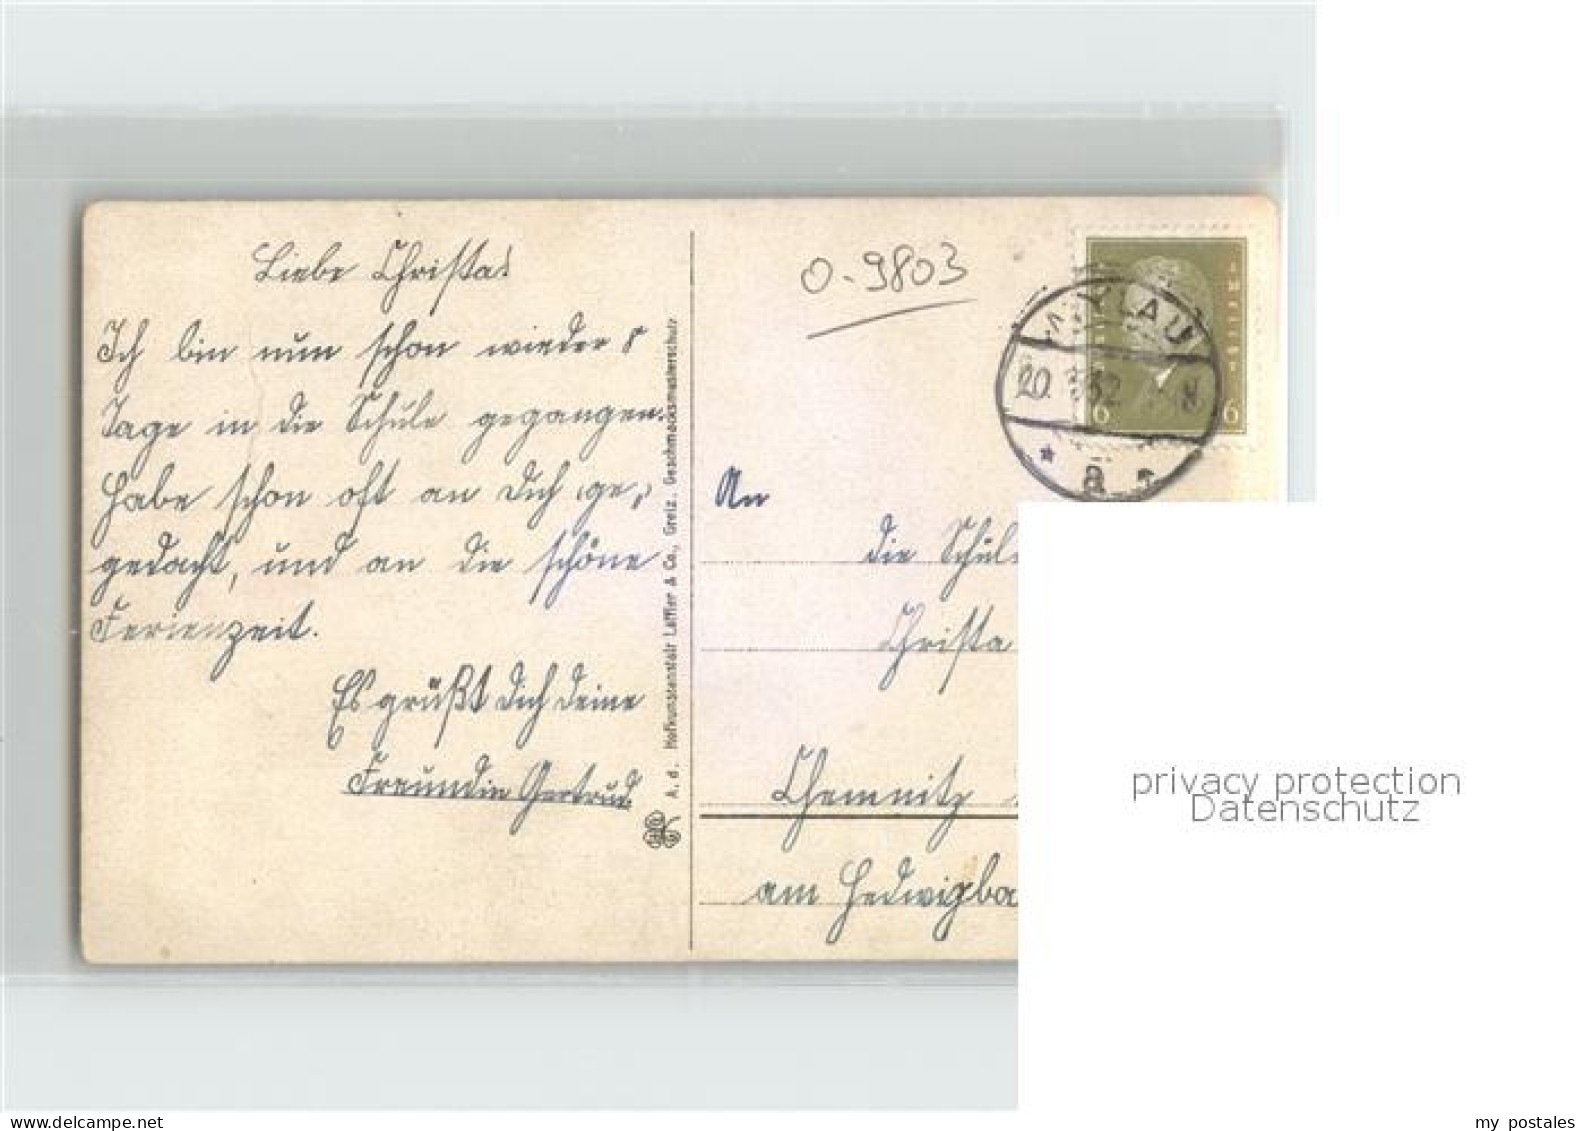 Liebe Christa!
Ich bin nun schon wieder 8
Tage in die Schule gegangen.
Habe schon oft an Dich ge-
gedacht, und an die schöne
Ferienzeit.
Es grüßt Dich Deine
Freundin Gertrud.
A. d. Hofkunstanstalt Löffler & Co., Greiz. Geschmacksmusterschutz
0-9803
MYLAU
20. 32
a
6 6
An
die Schül
Christa
Chemnitz
am Hedwigba
privacy protection
Datenschutz
my postales